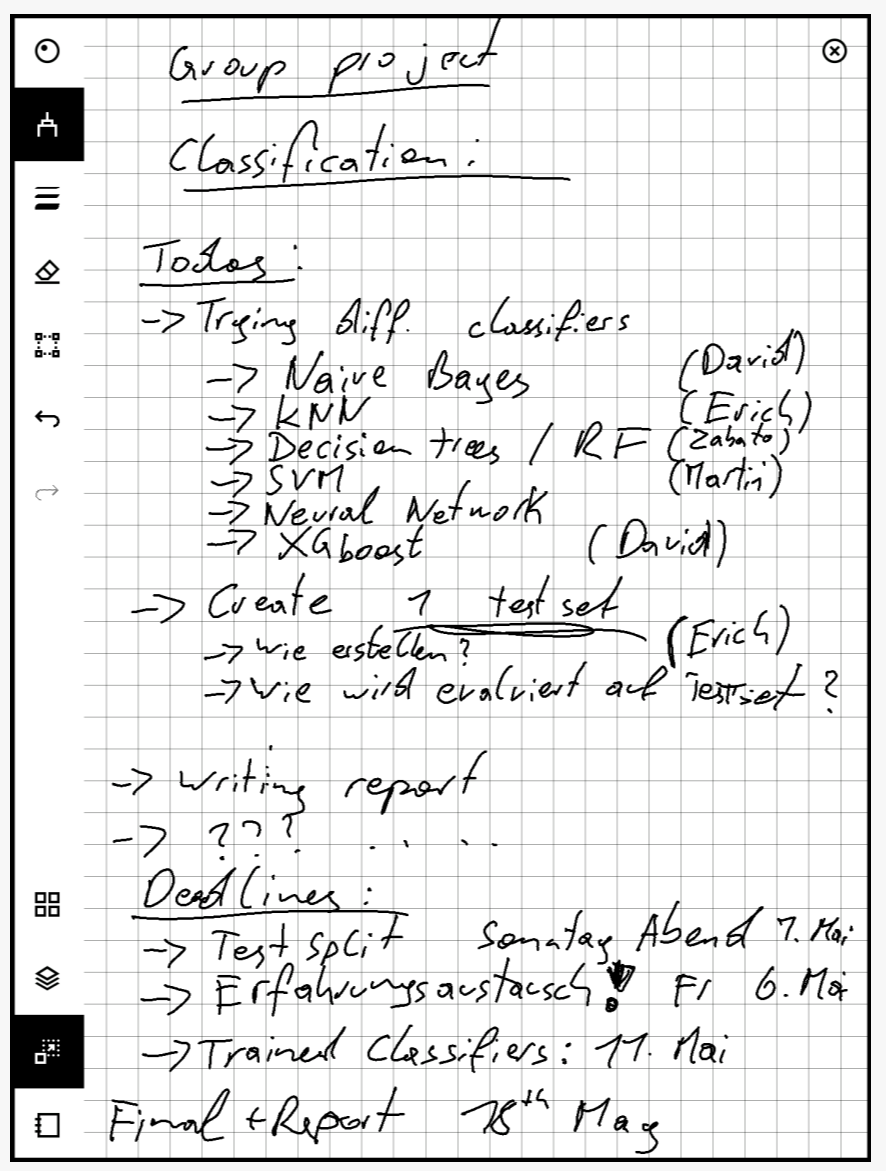 Group project
Classification:
Todos:
-> Trying diff. classifiers
-> Naive Bayes (David)
-> KNN (Erich)
-> Decision trees / RF (Zabato)
-> SVM (Martin)
-> Neural Network
-> XGboost (David)
-> Create 1 test set
-> Wie erstellen? (Erich)
-> Wie wird evaluiert auf Testset?
-> Writing report
-> ??? . . . .
Deadlines:
-> Test Split Sonntag Abend 1. Mai
-> Erfahrungsaustausch! Fr 6. Mai
-> Trained Classifiers: 11. Mai
Final + Report 18th May